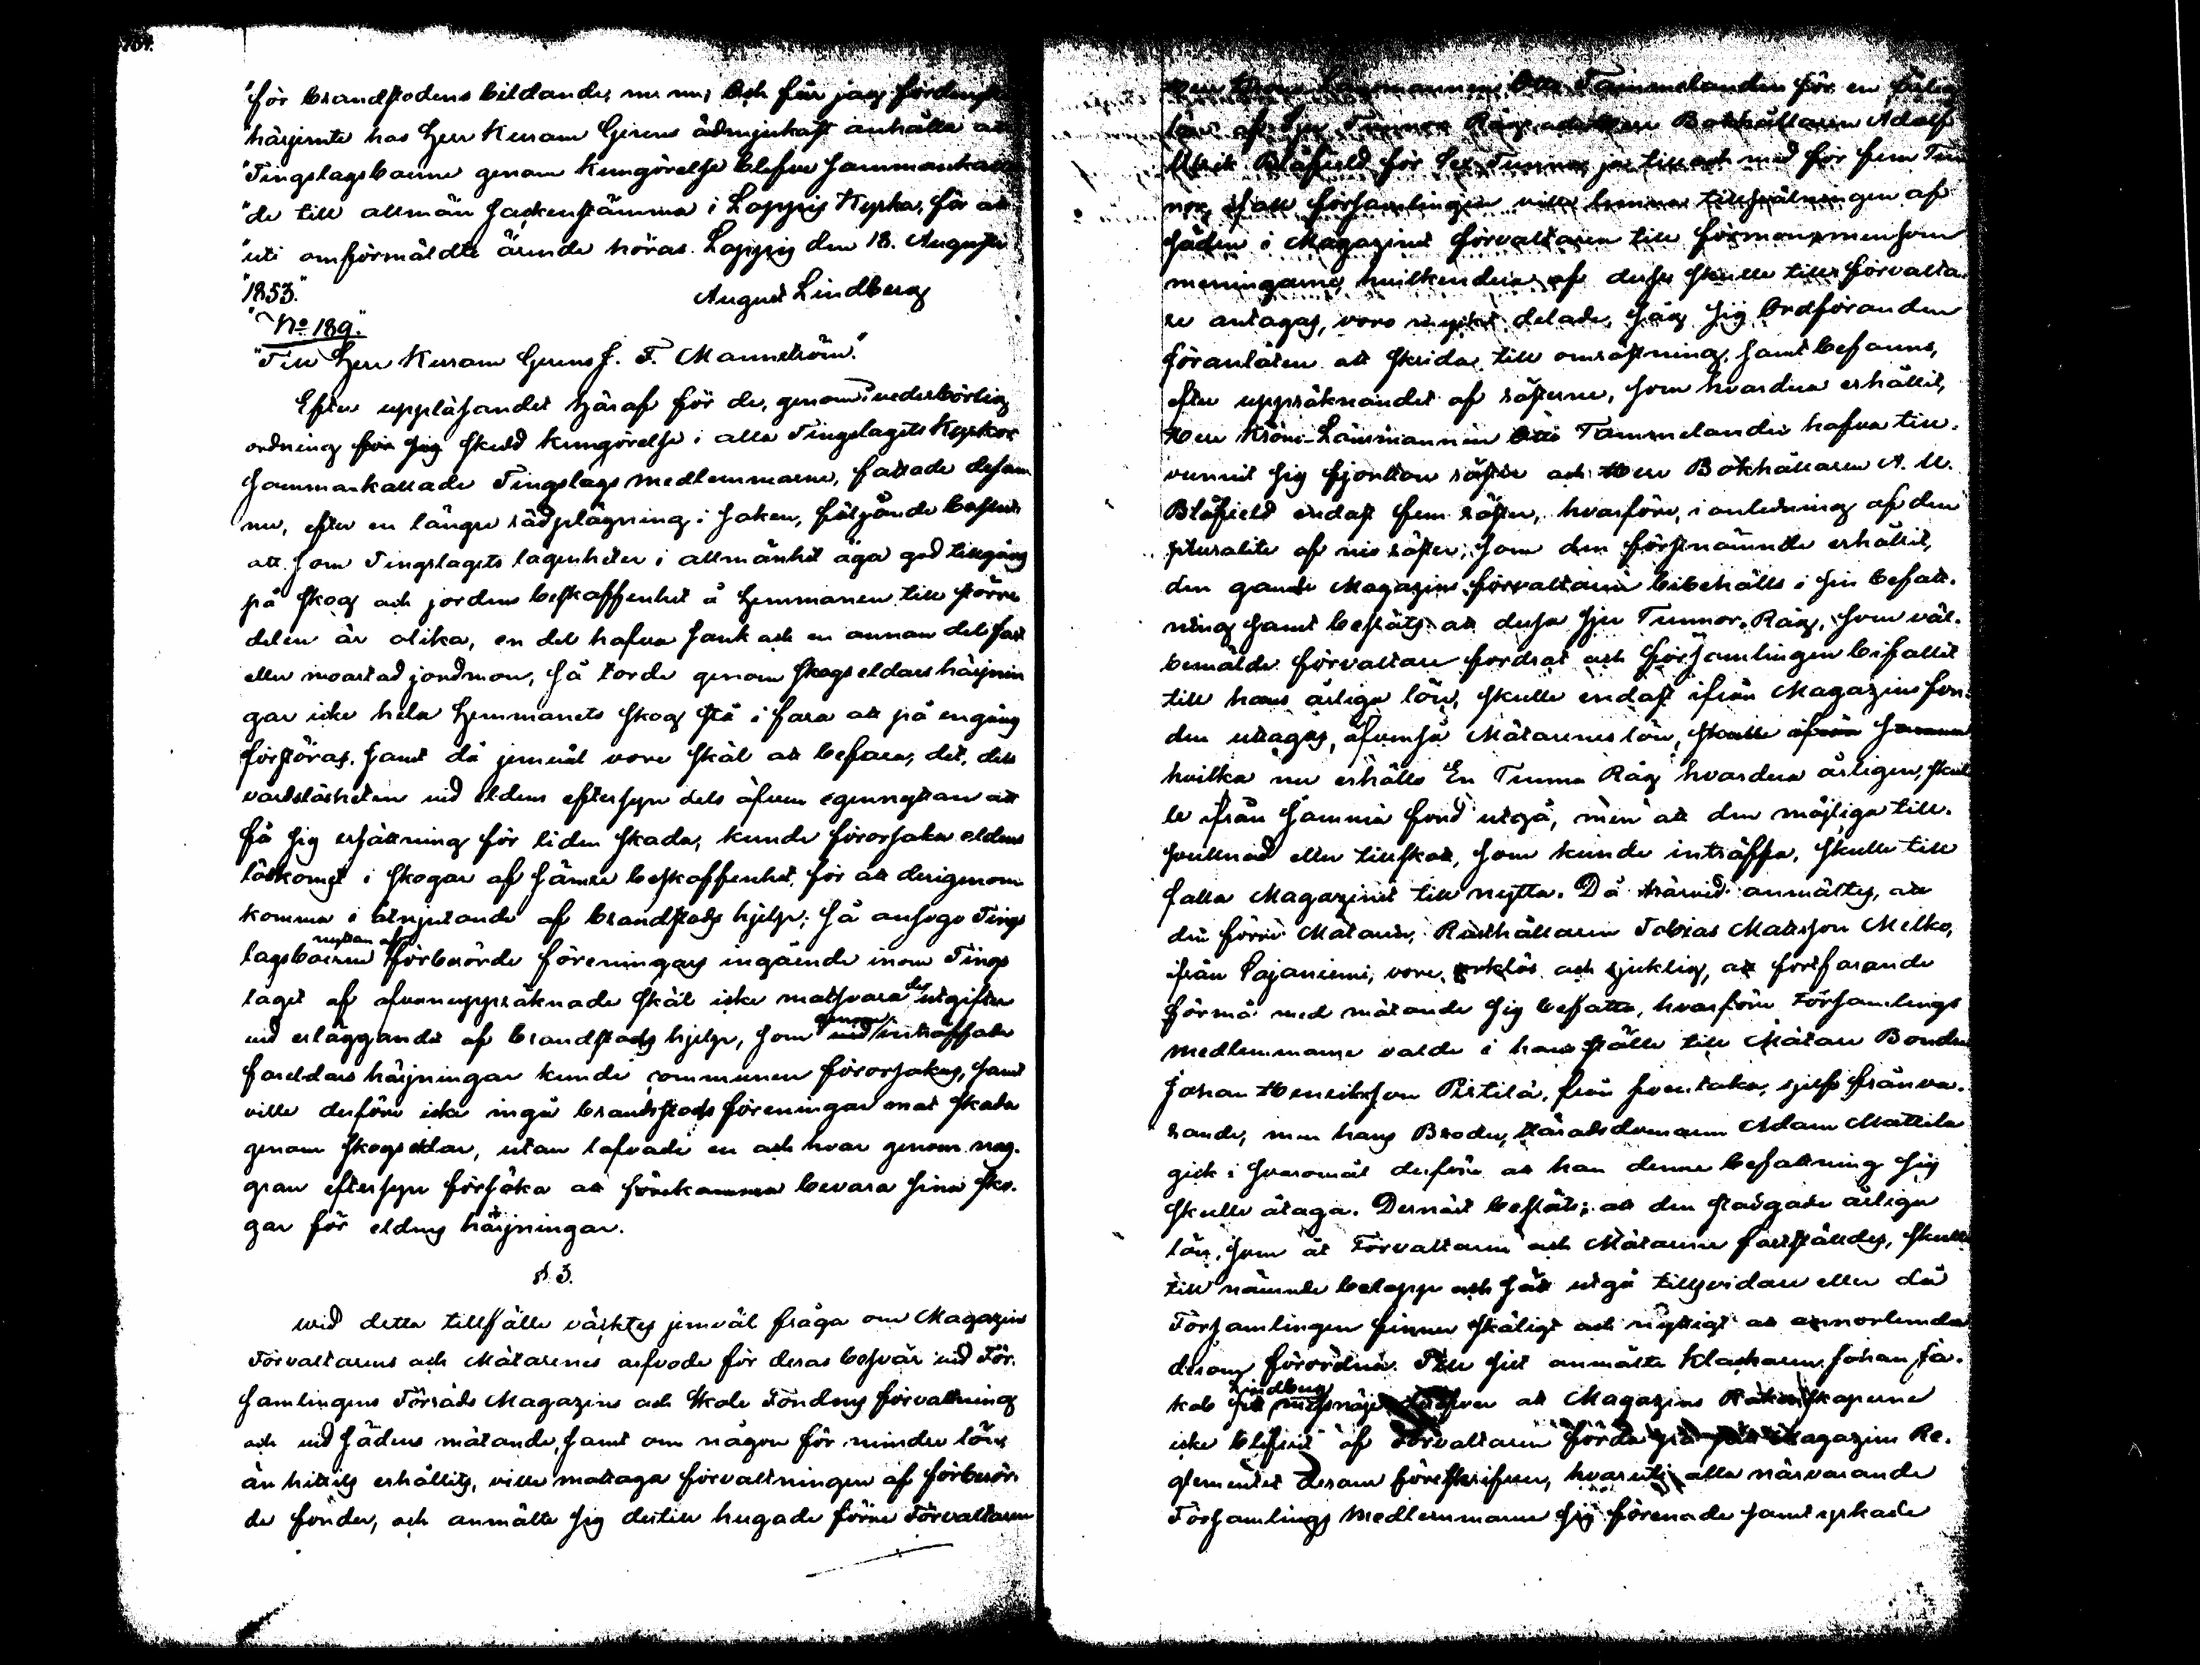 "för brandstodens bildande, m. m., Och får jag fördenskull
"härjemte hos Herr Kursam Girens ödmjukast anhålla att
"Tingslagsboerne genom kungörelse blefve sammankalla
"de till allmän Sockenstämma i Loppis Kyrka, för att
"uti omförmäldte ärende höras. Loppis den 18. Augusti
"1853."
August Lindberg
"No 189."
"Till Herr Kursam Gerens J. F. Mannström."
Efter uppläsandet häraf för de, genom i vederbörlig
ordning för sig skedd kungörelse i alla Tingslagets Kyrkor
sammankallade Tingslags medlemmarne, fattade desam
me, efter en längre rådplägning i saken, följande beslut:
att som Tingslagets lägenheter i allmänhet äga god tillgång
på skog och jordens beskaffenhet å hemmanen till större
delen är olika, en del hafva sank och en annan del hård
eller moartad jordmon, så torde genom skogseldars härjnin
gar icke hela hemmanets skog stå i fara att på engång
förstöras, samt då jemväl vore skäl att befara, det, dels
vårdslösheten vid eldens eftersyn dels äfven egennyttan att
få sig ersättning för liden skada, kunde förorsaka eldens
löskomst i skogar af sämre beskaffenhet, för att derigenom
komma i åtnjutande af brandstods hjelp; så ansågo Tings
nyttan af
lagsboerne förberörde föreningars ingående inom Tings
laget af ofvanuppräknade skäl icke motsvara de utgifter
genom
vid erläggandet af brandstods hjelp, som vid inträffade
skogseldars härjningar kunde communen förorsakas, samt
ville derföre icke ingå brandstods föreningar mot skada
genom skogseldar, utan lofvade en och hvar genom nog.
gran eftersyn försöka att förekomma bevara sina sko.
gar för eldens härjningar.
§ 3.
Wid detta tillfälle väcktes jemväl fråga om Magazins
Förvaltarens och Mätarenes arfvode för deras besvär vid För.
samlingens Förråds Magazins och Skole Fondens förvaltning
och vid sädens mätande, samt om någon för mindre lön,
än hittills erhållits, ville mottaga förvaltningen af förberör.
de fonder, och anmälte sig dertill hugade förre Förvaltaren
Herr Krono Länsmannen Otto Tammelander för en årlig
lön af sju Tunnor Råg och Herr Bokhållaren Adolf
Ulrik Blåfield för Sex Tunnor, ja till och med för fem Tun
nor, ifall församlingen ville lemna tillsvälningen af
säden i Magazinet förvaltaren till förmon, men som
meningarne, hvilkendera af dessa skulle till förvalta.
re antagas, voro mycket delade, såg sig Ordföranden
föranlåten att skrida till omröstning, samt befanns,
efter uppräknandet af rösterne, som hvardera erhållit,
Herr Krono-Länsmannen Otto Tammelander hafva till.
vunnit sig fjorton röster och Herr Bokhållaren A. U.
Blåfield endast fem röster, hvarföre, i anledning af den
pluralite af nio röster, som den förstnämnde erhållit,
den gamle Magazins förvaltaren bibehålls i sin befatt.
ning samt beslöts: att dessa sju Tunnor Råg, som väl.
bemälde förvaltare fordrat och församlingen bifallit
till hans årliga lön, skulle endast ifrån Magazins fon.
den uttagas, äfvenså Mätarenes lön, skulle ifrån samma
hvilka nu erhålla En Tunna Råg hvardera årligen, skul
le ifrån samma fond utgå, men att den möjliga till.
svullnad eller tillskott, som kunde inträffa, skulle till
falla Magazinet till nytta. Då härvid anmältes, att
den förre Mätaren, Rusthållaren Tobias Matsson Melko,
ifrån Sajaniemi, vore orklös och sjuklig, att fortfarande
förmå med mätande sig befatta, hvarföre Församlings
medlemmarne valde i hans ställe till Mätare Bonden
Johan Henriksson Pertilä, från, sjelf frånva.
rande, men hans Broder, Häradsdomaren Adam Mattila
gick i svaromål derföre att han denne befattning sig
skulle åtaga. Dernäst beslöts: att den stadgade årliga
lön, som åt Förvaltaren och Mätarene fastställdes, skulle
till nämnde belopp och sätt utgå tillsvidare eller då
Församlingen finner skäligt och nyttigt att annorlunda
derom förordna. Till sist anmälte Klockaren Johan Ja.
Lindberg
kob sitt missnöje deröfver att Magazins Räkenskaperne
icke blifvit af Förvaltaren förda på sätt Magazin Re.
glementet derom föreskrifver, hvaruti alla närvarande
Församlings Medlemmarne sig förenade samt yrkade